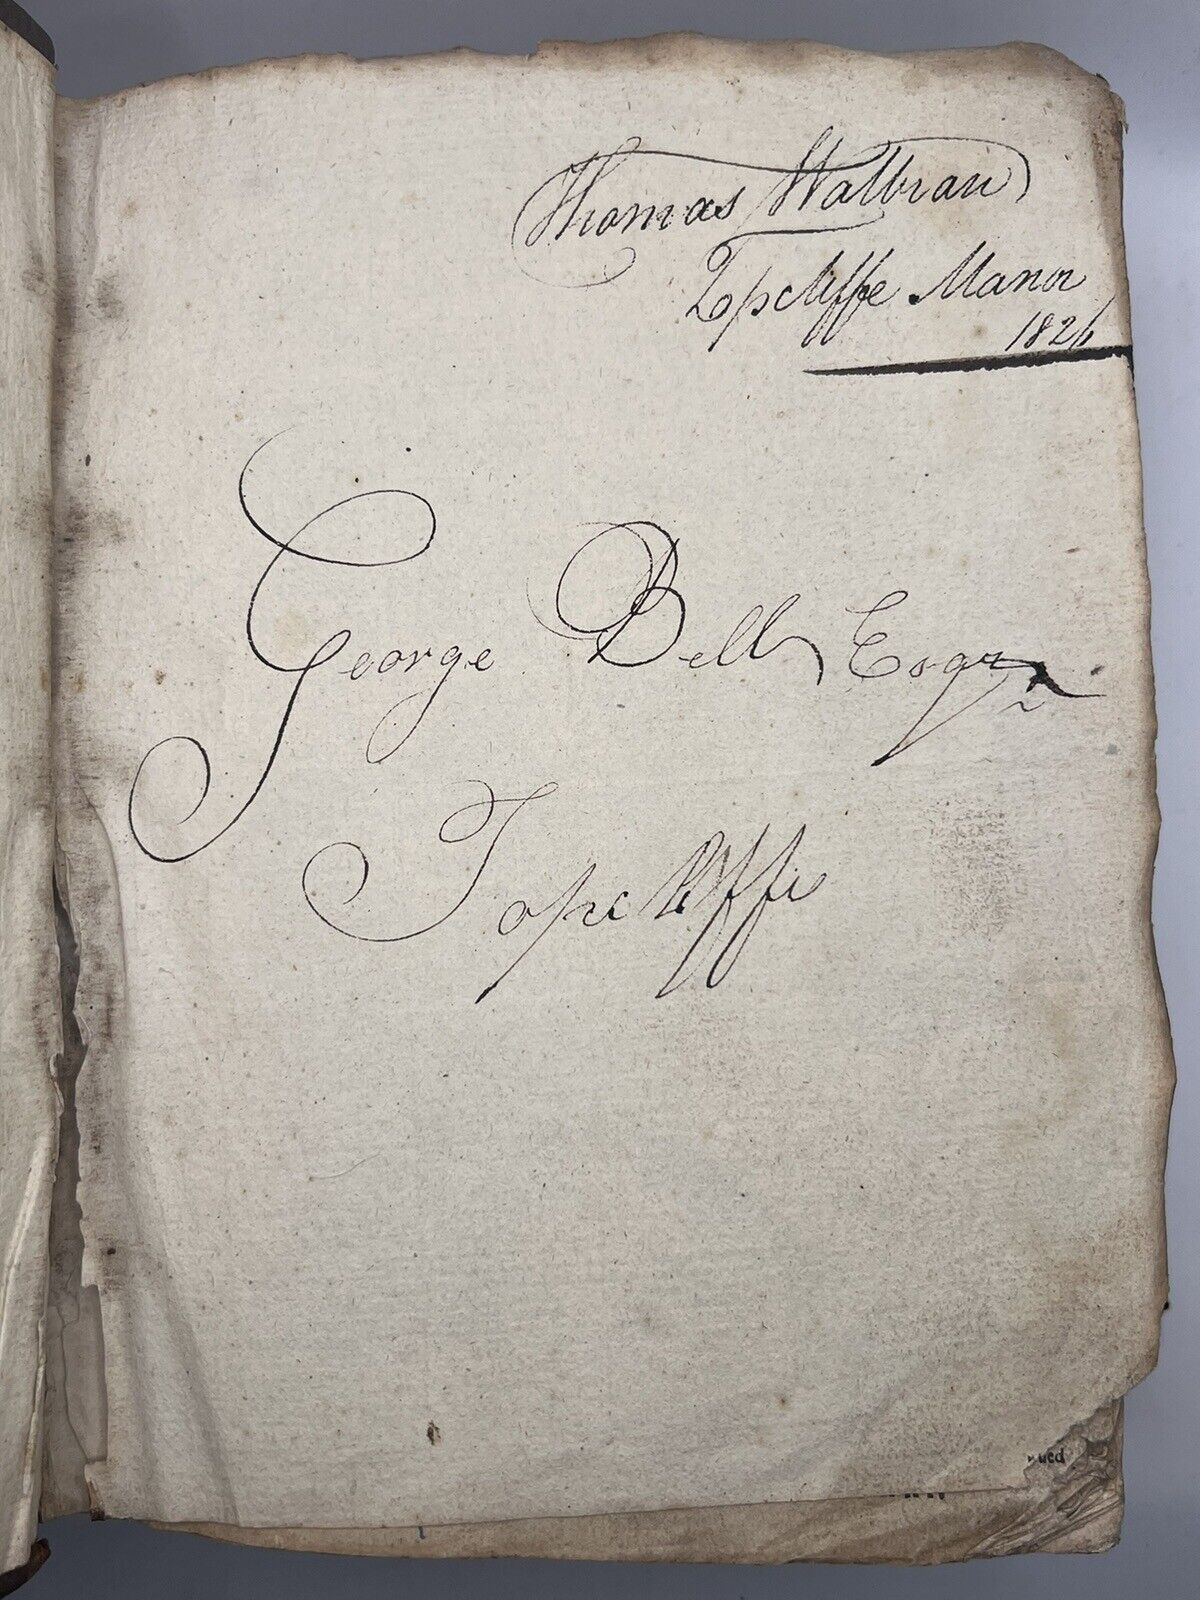 Thomas Walbran
Topcliffe Manor
1826
George Bell Esqr
Topcliffe